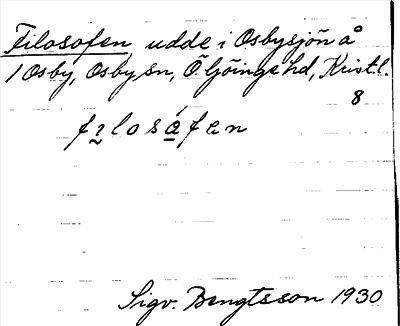 Filosofen, udde i Osbysjön å
1 Osby, Osby sn, Ö Göinge hd, Krist. l.
8
filosáfen
Sigv. Bengtsson 1930